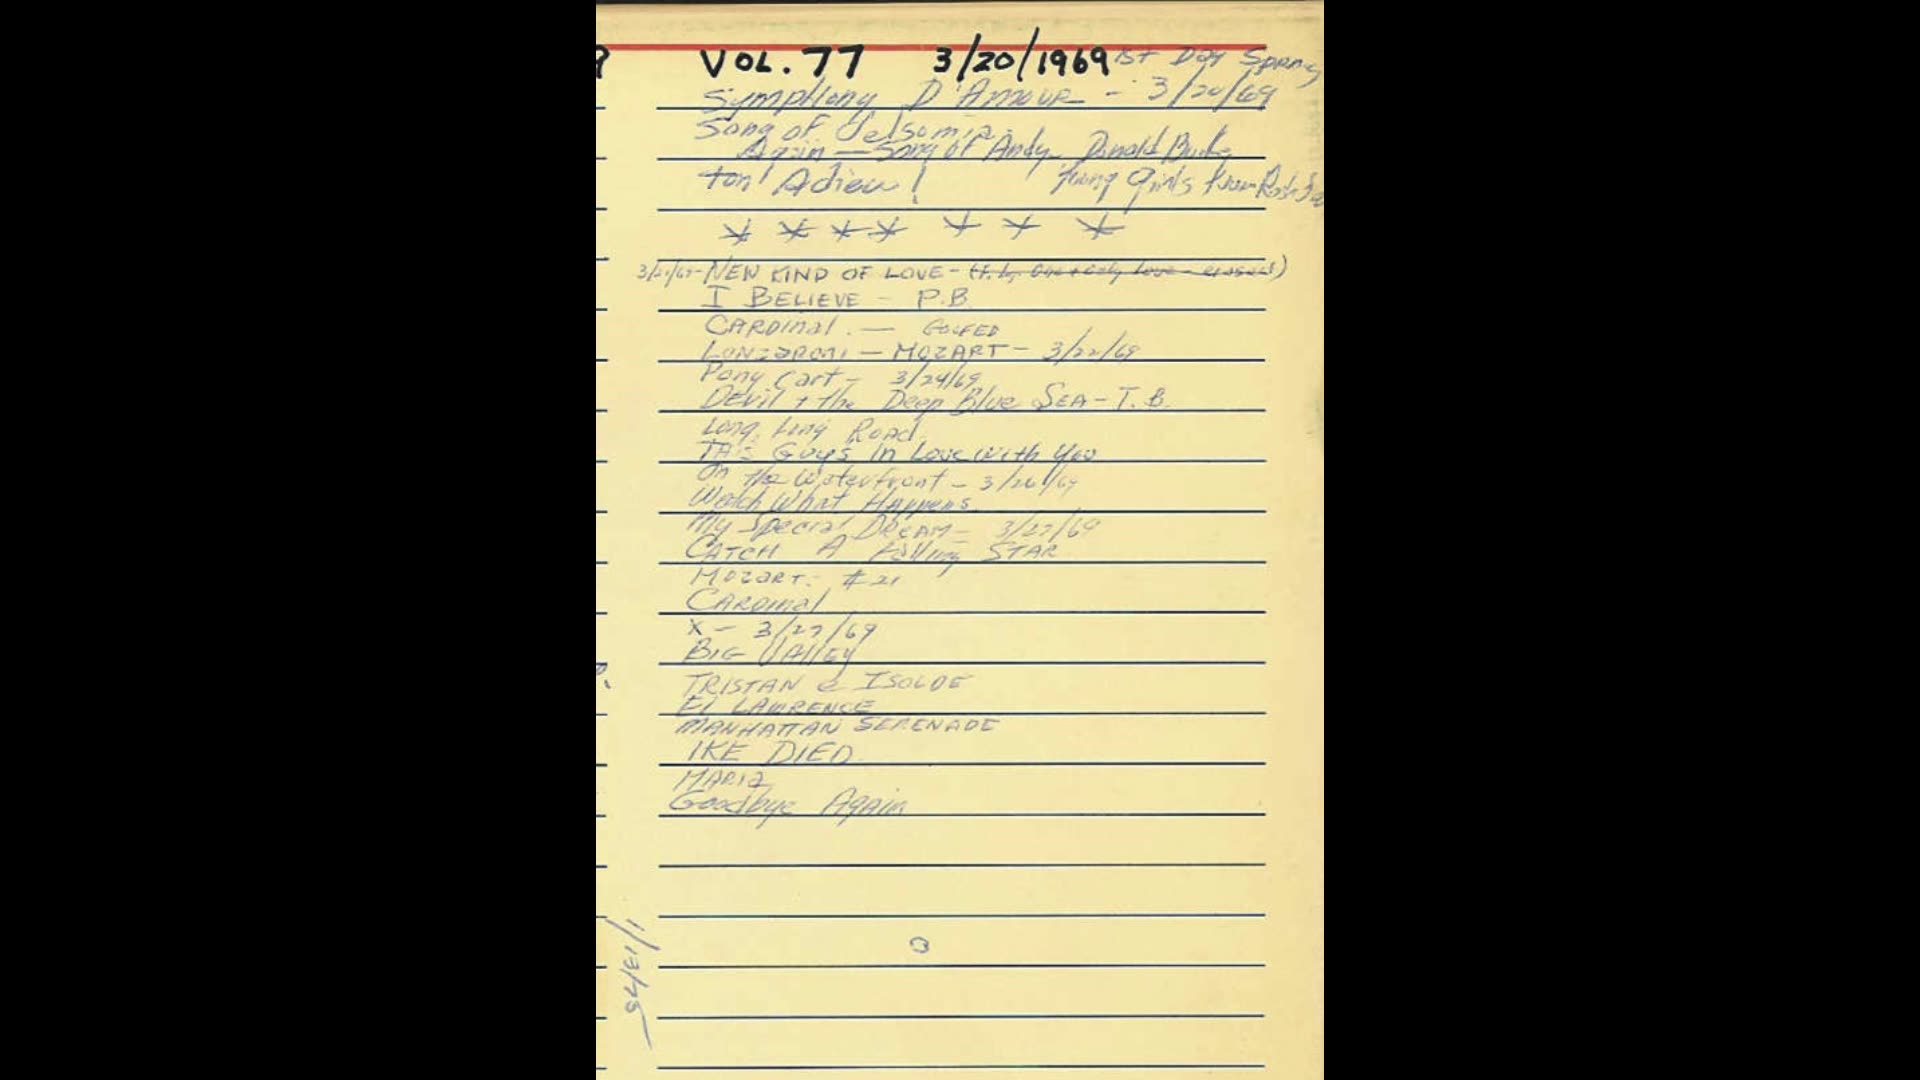 VOL. 77 3/20/1969 1st Day Spring
Symphony D'Amour - 3/20/69
Song of Gelsomina.
Again — Song of Andy Donald
ton! Adieu! Young Girls from
* * * * * * *
3/21/69 - NEW KIND OF LOVE - One + Only Love - erased)
I BELIEVE - P.B.
CARDINAL. — GOLFED
— MOZART - 3/22/69
Pony Cart - 3/24/69
Devil + the Deep Blue SEA - T.B.
Long, Long Road.
This Guys In Love With You
On the Waterfront - 3/26/69
Watch What Happens.
My Special DREAM - 3/27/69
CATCH A Falling STAR
MOZART. #21
CARDINAL
X - 3/27/69
BIG VALLEY
TRISTAN & ISOLDE
LAWRENCE
MANHATTAN SERENADE
IKE DIED.
MARIA
Goodbye Again
1/13/75